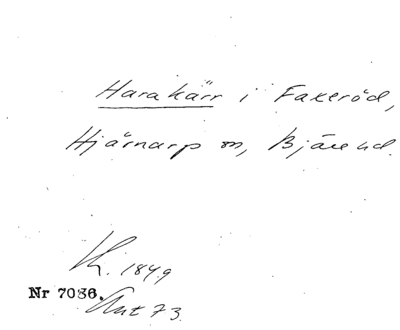 Harakärr i Faxeröd,
Hjärnarp sn, Bjäre hd.
K. 1849
Nr 7086. Ant 73